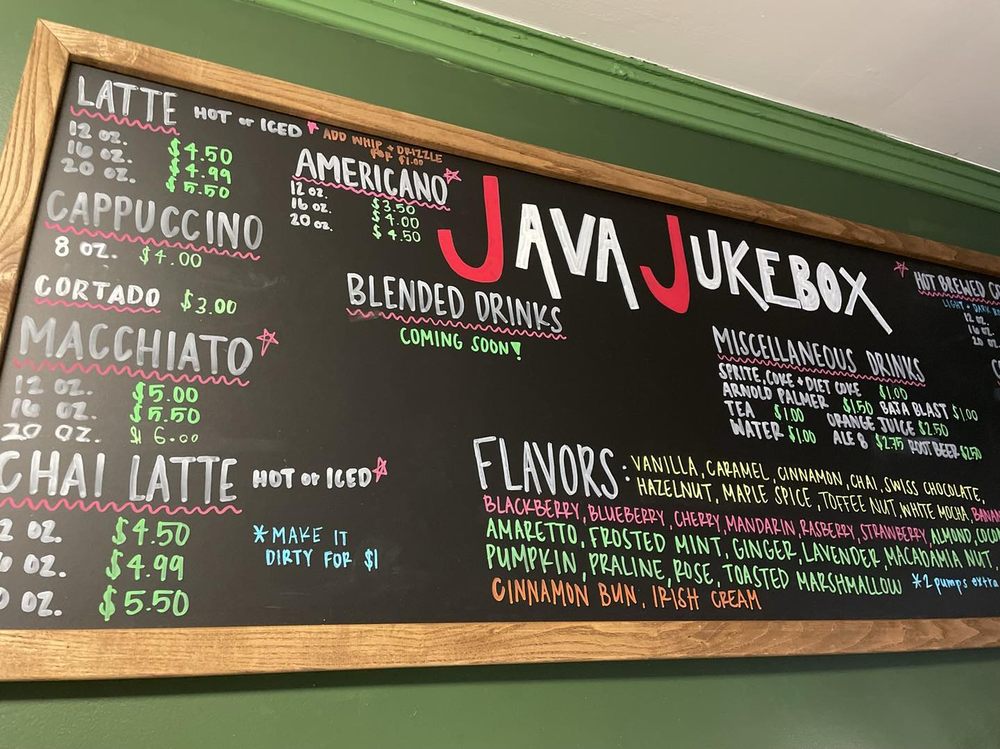 LATTE HOT or ICED
12 oz. $4.50
16 oz. $4.99
20 oz. $5.50
CAPPUCCINO
8 oz. $4.00
CORTADO $3.00
MACCHIATO
12 oz. $5.00
16 oz. $5.50
20 oz. $6.00
CHAI LATTE HOT or ICED
2 oz. $4.50
6 oz. $4.99
0 oz. $5.50
*MAKE IT
DIRTY FOR $1
ADD WHIP + DRIZZLE
FOR $1.00
AMERICANO
12 oz. $3.50
16 oz. $4.00
20 oz. $4.50
JAVA JUKEBOX
BLENDED DRINKS
COMING SOON!
HOT BREWED CO
LIGHT + DARK
12 oz.
16 oz.
20 oz.
MISCELLANEOUS DRINKS
SPRITE, COKE + DIET COKE $1.00
ARNOLD PALMER $1.50 BAJA BLAST $1.00
TEA $1.00 ORANGE JUICE $2.50
WATER $1.00 ALE 8 $2.75 ROOT BEER $2.50
FLAVORS: VANILLA, CARAMEL, CINNAMON, CHAI, SWISS CHOCOLATE,
HAZELNUT, MAPLE SPICE, TOFFEE NUT, WHITE MOCHA, BANA
BLACKBERRY, BLUEBERRY, CHERRY, MANDARIN, RASBERRY, STRAWBERRY, ALMOND, COCON
AMARETTO, FROSTED MINT, GINGER, LAVENDER, MACADAMIA NUT,
PUMPKIN, PRALINE, ROSE, TOASTED MARSHMALLOW *2 pumps extra
CINNAMON BUN, IRISH CREAM